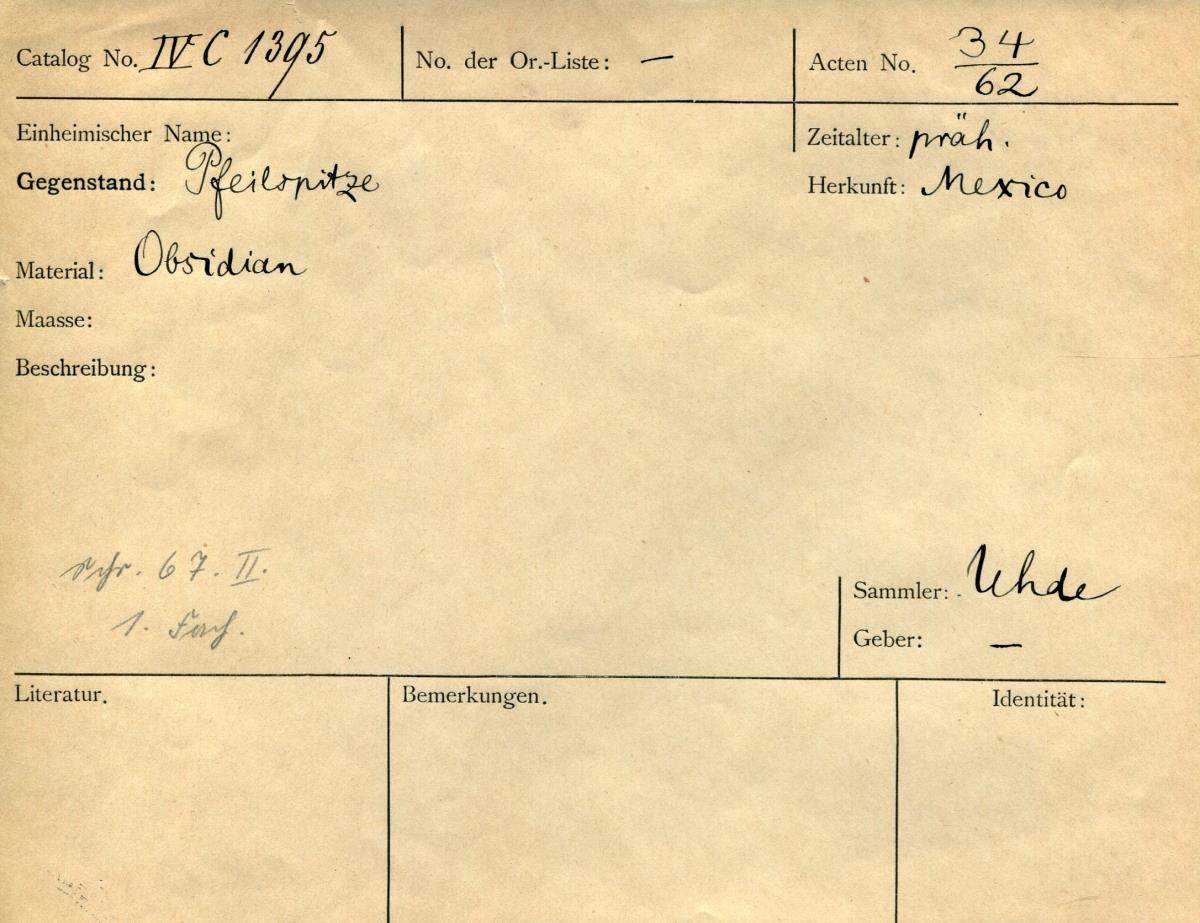 Catalog No. IV C 1395
No. der Or.-Liste: —
Acten No. 34/62
Einheimischer Name:
Zeitalter: präh.
Gegenstand: Pfeilspitze
Herkunft: Mexico
Material: Obsidian
Maasse:
Beschreibung:
Schr. 67. II.
1. Fach.
Sammler: Uhde
Geber: —
Literatur.
Bemerkungen.
Identität: